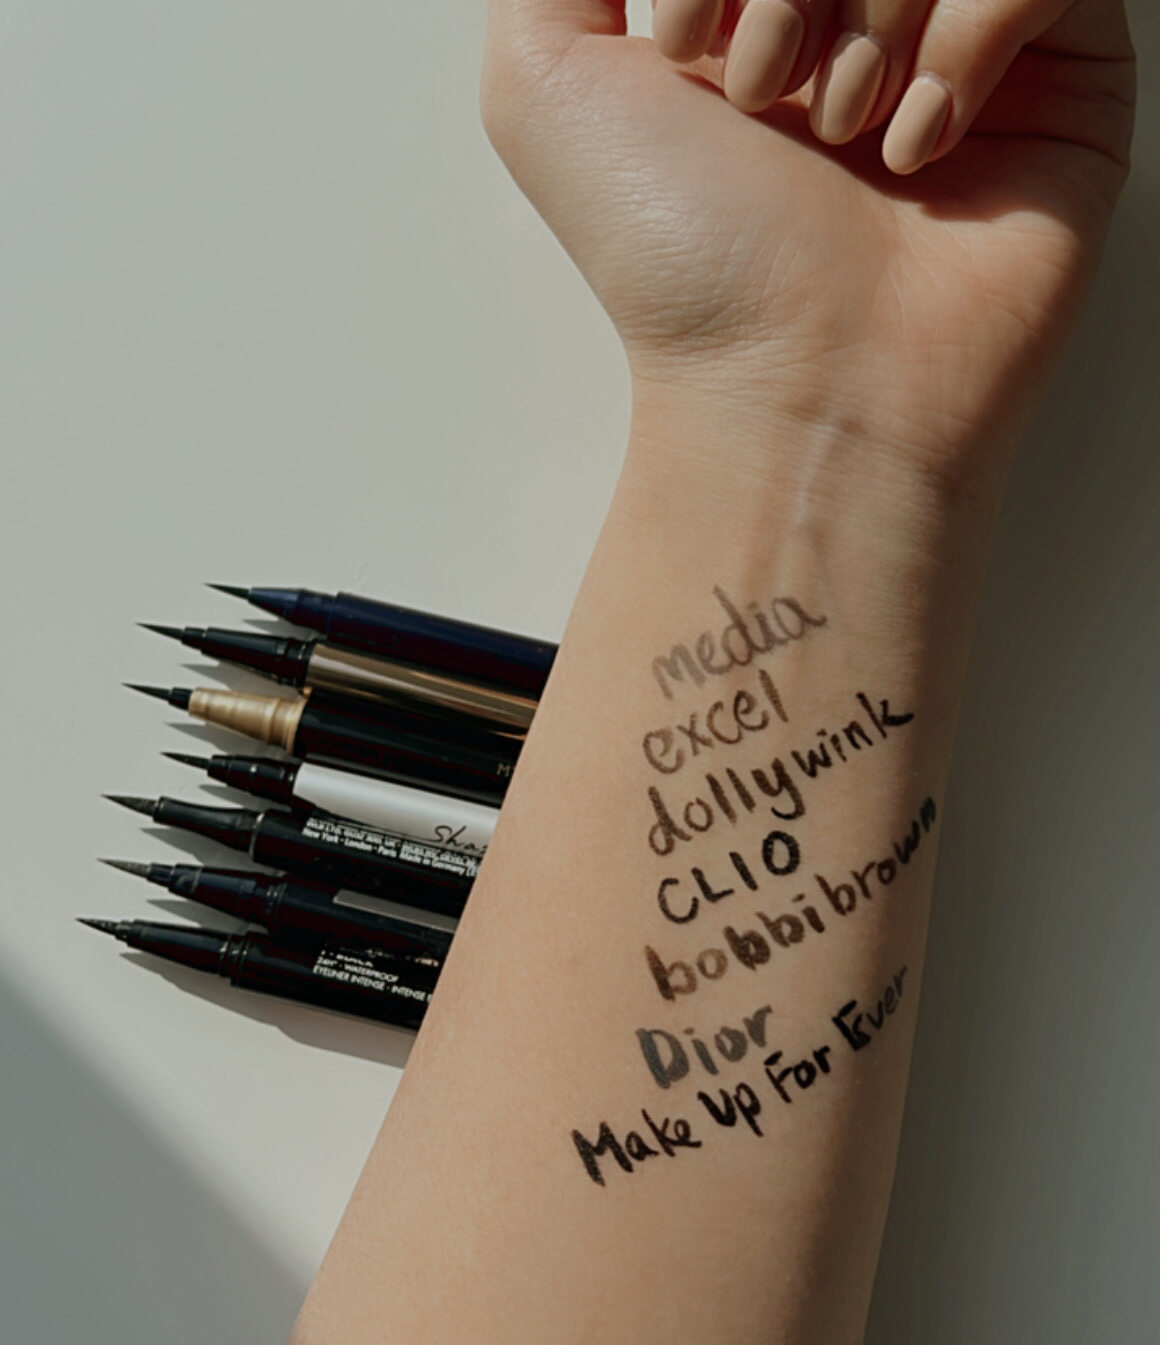 media
excel
dollywink
CLIO
bobbibrown
Dior
Make Up For Ever
M
Shar
New York · London · Paris Made in Germany
24H · WATERPROOF
EYELINER INTENSE · INTENSE